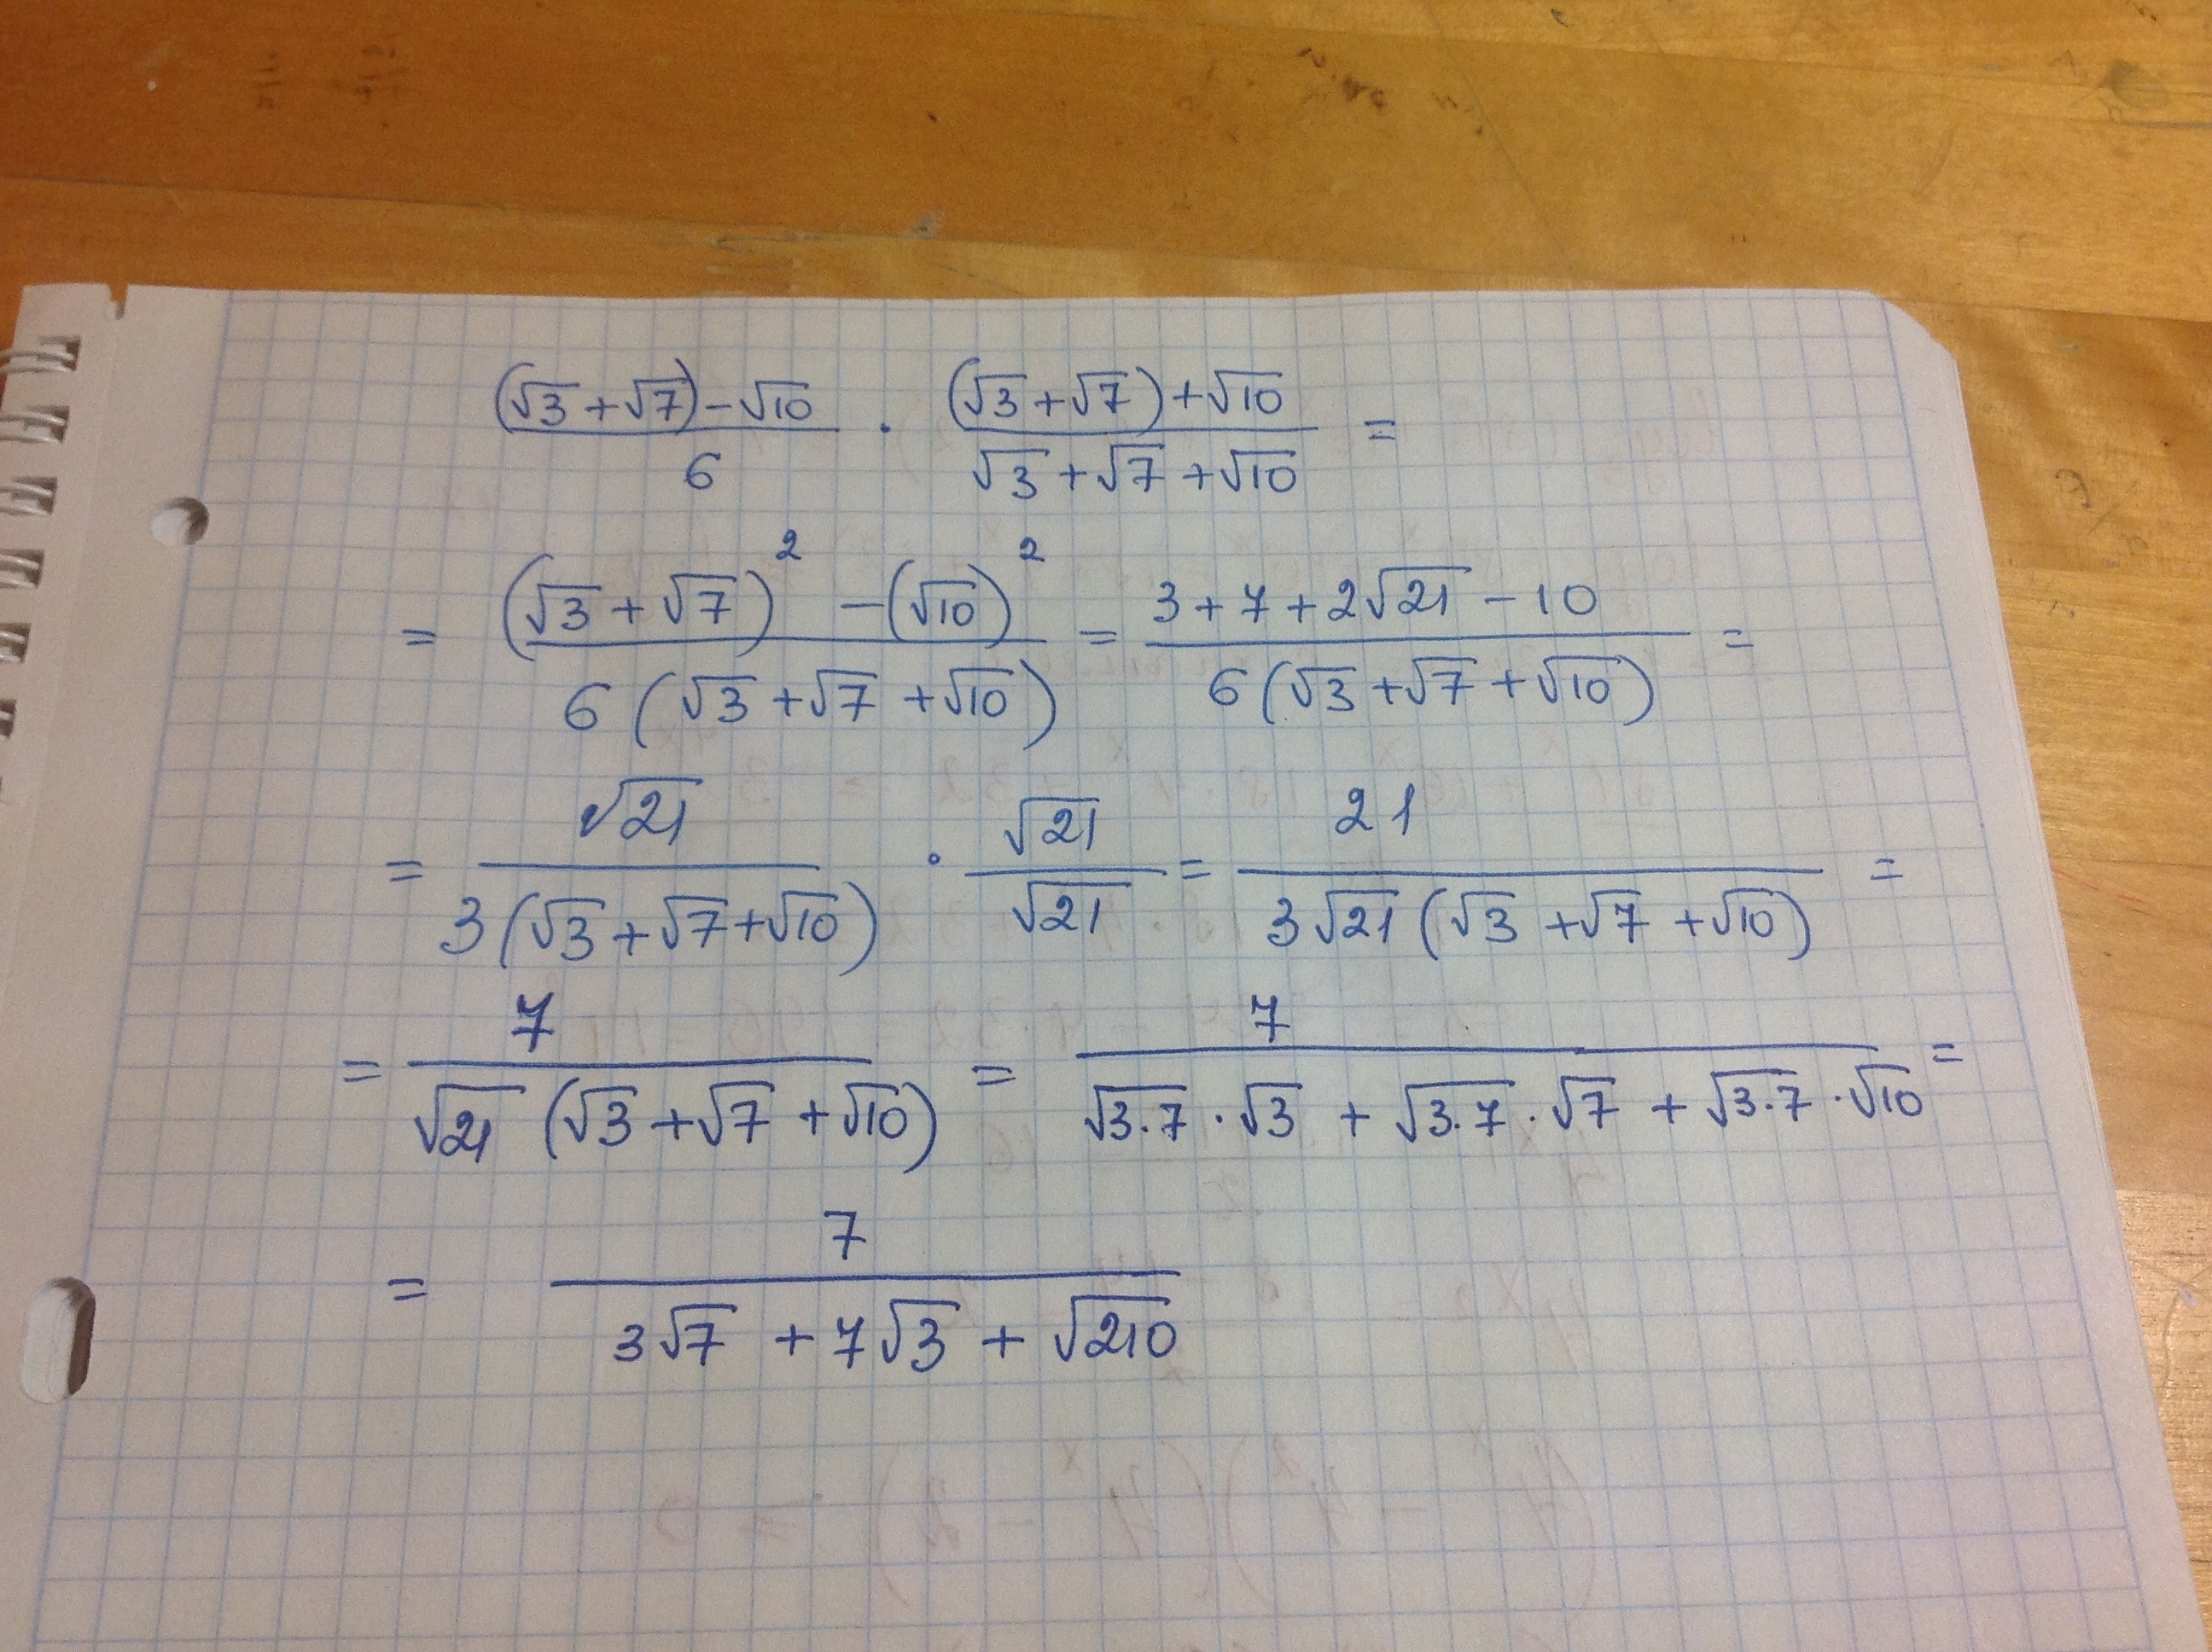 ((√3+√7)-√10)/6 · ((√3+√7)+√10)/(√3+√7+√10) =
= ((√3+√7)² -(√10)²)/(6(√3+√7+√10)) = (3+7+2√21-10)/(6(√3+√7+√10)) =
= √21/(3(√3+√7+√10)) · √21/√21 = 21/(3√21(√3+√7+√10)) =
= 7/(√21(√3+√7+√10)) = 7/(√3·7·√3 + √3·7·√7 + √3·7·√10) =
= 7/(3√7+7√3+√210)